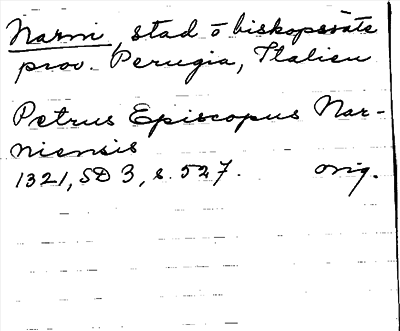 Narni, stad o biskopssäte
prov. Perugia, Italien
Petrus Episcopus Nar-
niensis
1321, SD 3, s. 527. orig.